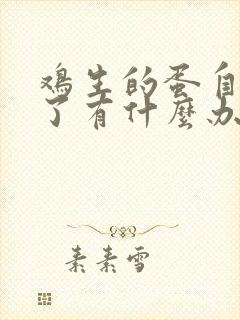 鸡生的蛋自
了有什麼办
素素雪